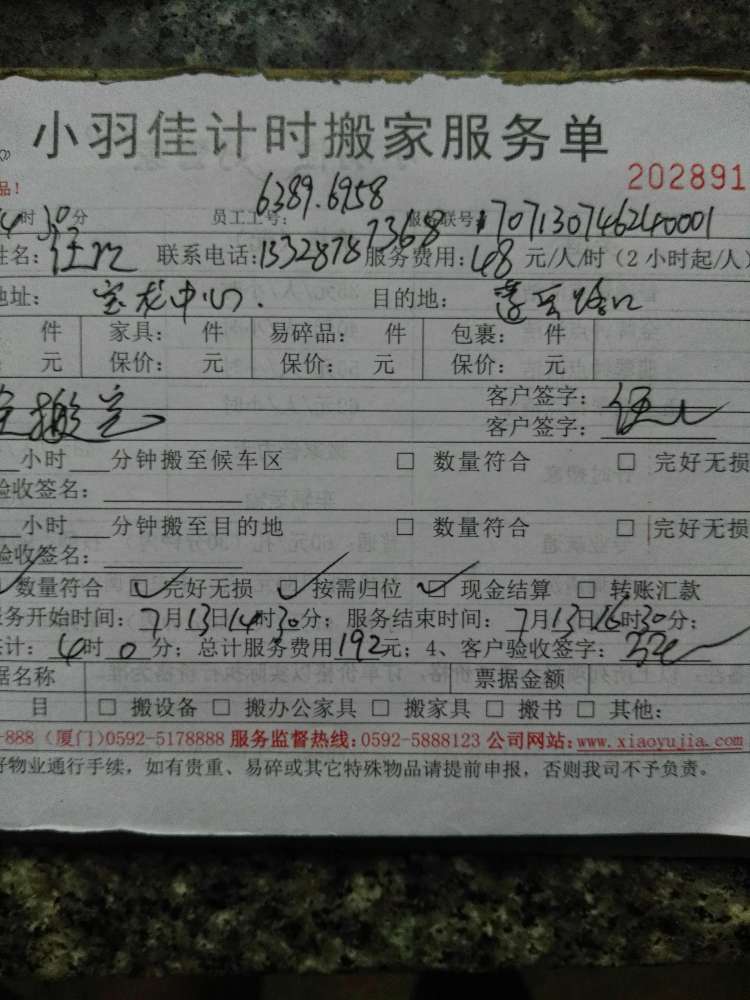 小羽佳计时搬家服务单
品！ 202891
时30分 员工工号：6389.6958 服务联号：1707130746240001
姓名： 联系电话：13328787368 服务费用：48元/人/时（2小时起/人）
地址：宝龙中心. 目的地：
件 家具： 件 易碎品： 件 包裹： 件
元 保价： 元 保价： 元 保价： 元
客户签字：
搬完 客户签字：
小时 分钟搬至候车区 □ 数量符合 □ 完好无损
验收签名：
小时 分钟搬至目的地 □ 数量符合 □ 完好无损
验收签名：
数量符合 ☑ 完好无损 ☑ 按需归位 ☑ 现金结算 □ 转账汇款
务开始时间：7月13日14时30分；服务结束时间：7月13日16时30分；
计：4时0分；总计服务费用192元；4、客户验收签字：
据名称 票据金额
目 □ 搬设备 □ 搬办公家具 □ 搬家具 □ 搬书 □ 其他：
-888（厦门）0592-5178888 服务监督热线：0592-5888123 公司网站：www.xiaoyujia.com
好物业通行手续，如有贵重、易碎或其它特殊物品请提前申报，否则我司不予负责。